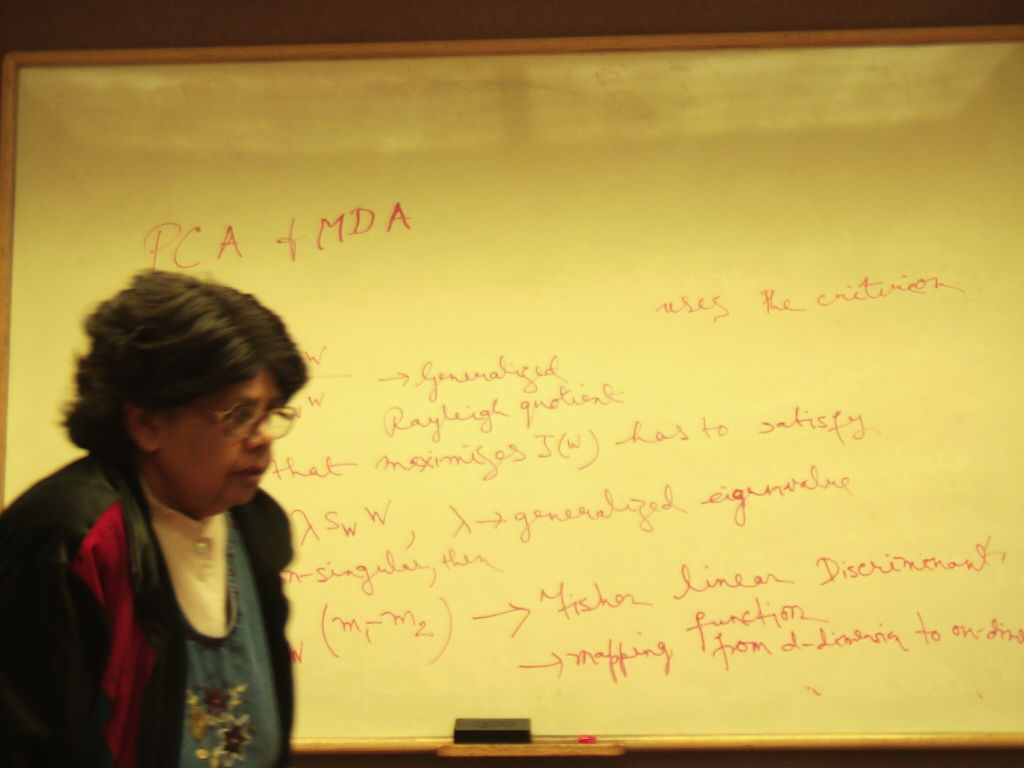 PCA & MDA
uses the criterion
W
→ Generalized
W
Rayleigh quotient
that maximizes J(W) has to satisfy
λ S_W W, λ → generalized eigenvalue
n-singular, then
W (m₁-m₂) → Fisher linear Discriminant
function
→ mapping from d-dimension to on-dim